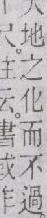 大地之化而不過
尺。註云。書或作